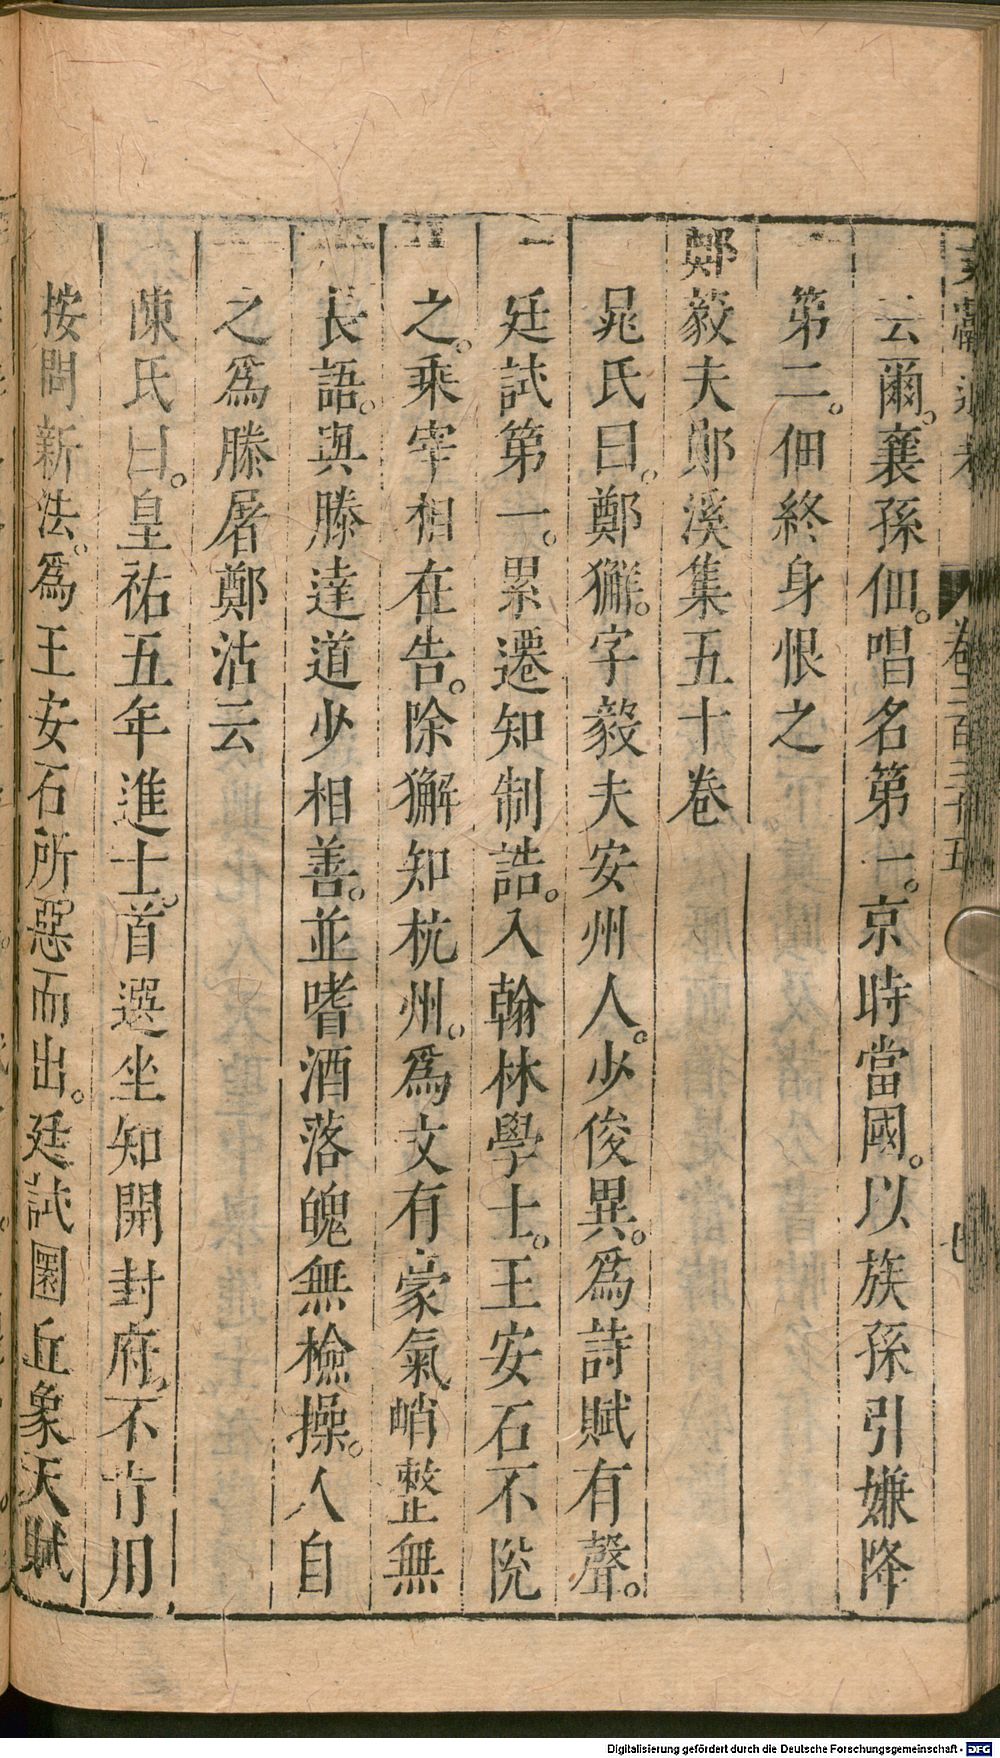 文獻通考 卷二百三十五 七
云爾。襄孫佃。唱名第一。京時當國。以族孫引嫌降
第二。佃終身恨之
鄭毅夫鄖溪集五十卷
晁氏曰。鄭獬。字毅夫安州人。少俊異。爲詩賦有聲。
廷試第一。累遷知制誥。入翰林學士。王安石不悅
之。乘宰相在告。除獬知杭州。爲文有豪氣峭整無
長語。與滕達道少相善。並嗜酒落魄無檢操。人目
之爲滕屠鄭沽云
陳氏曰。皇祐五年進士。首選坐知開封府，不肯用
按問新法。爲王安石所惡而出。廷試圜丘象天賦
Digitalisierung gefördert durch die Deutsche Forschungsgemeinschaft - DFG